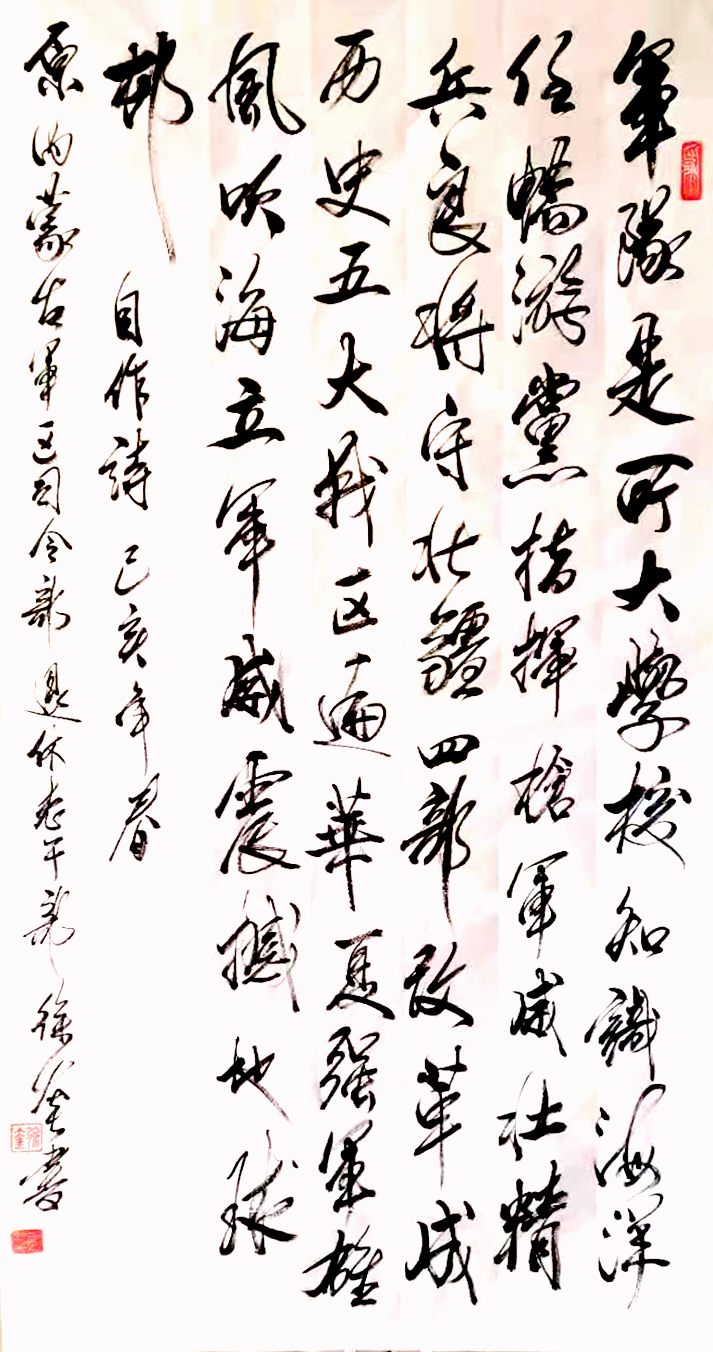 軍隊是所大學校知識海深
任暢游黨指揮槍軍威壮精
兵良将守北疆四部改革成
历史五大战区遍華夏强軍雄
風吹海立軍威震撼地球
自作詩 己亥年春
原内蒙古軍区司令部退休老干部 徐奎書